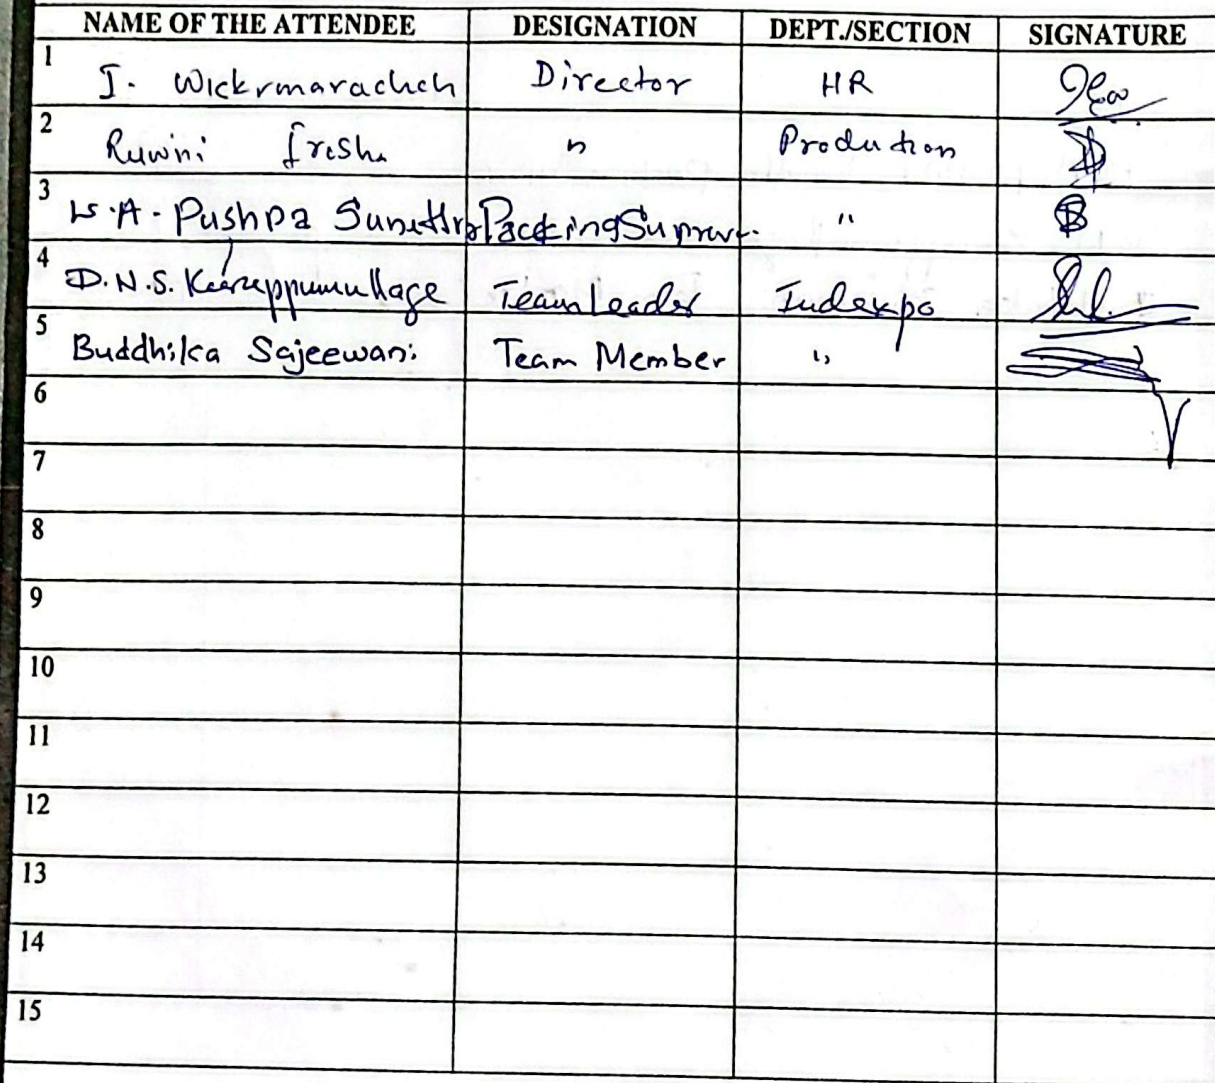 NAME OF THE ATTENDEE DESIGNATION DEPT./SECTION SIGNATURE
1 J. Wickrmarachch Director HR
2 Ruwini Iresha " Production
3 A. Pushpa Sunethra Packing Superv. "
4 D.N.S. Keerappumullage Team Leader Indexpo
5 Buddhika Sajeewani Team Member "
6
7
8
9
10
11
12
13
14
15